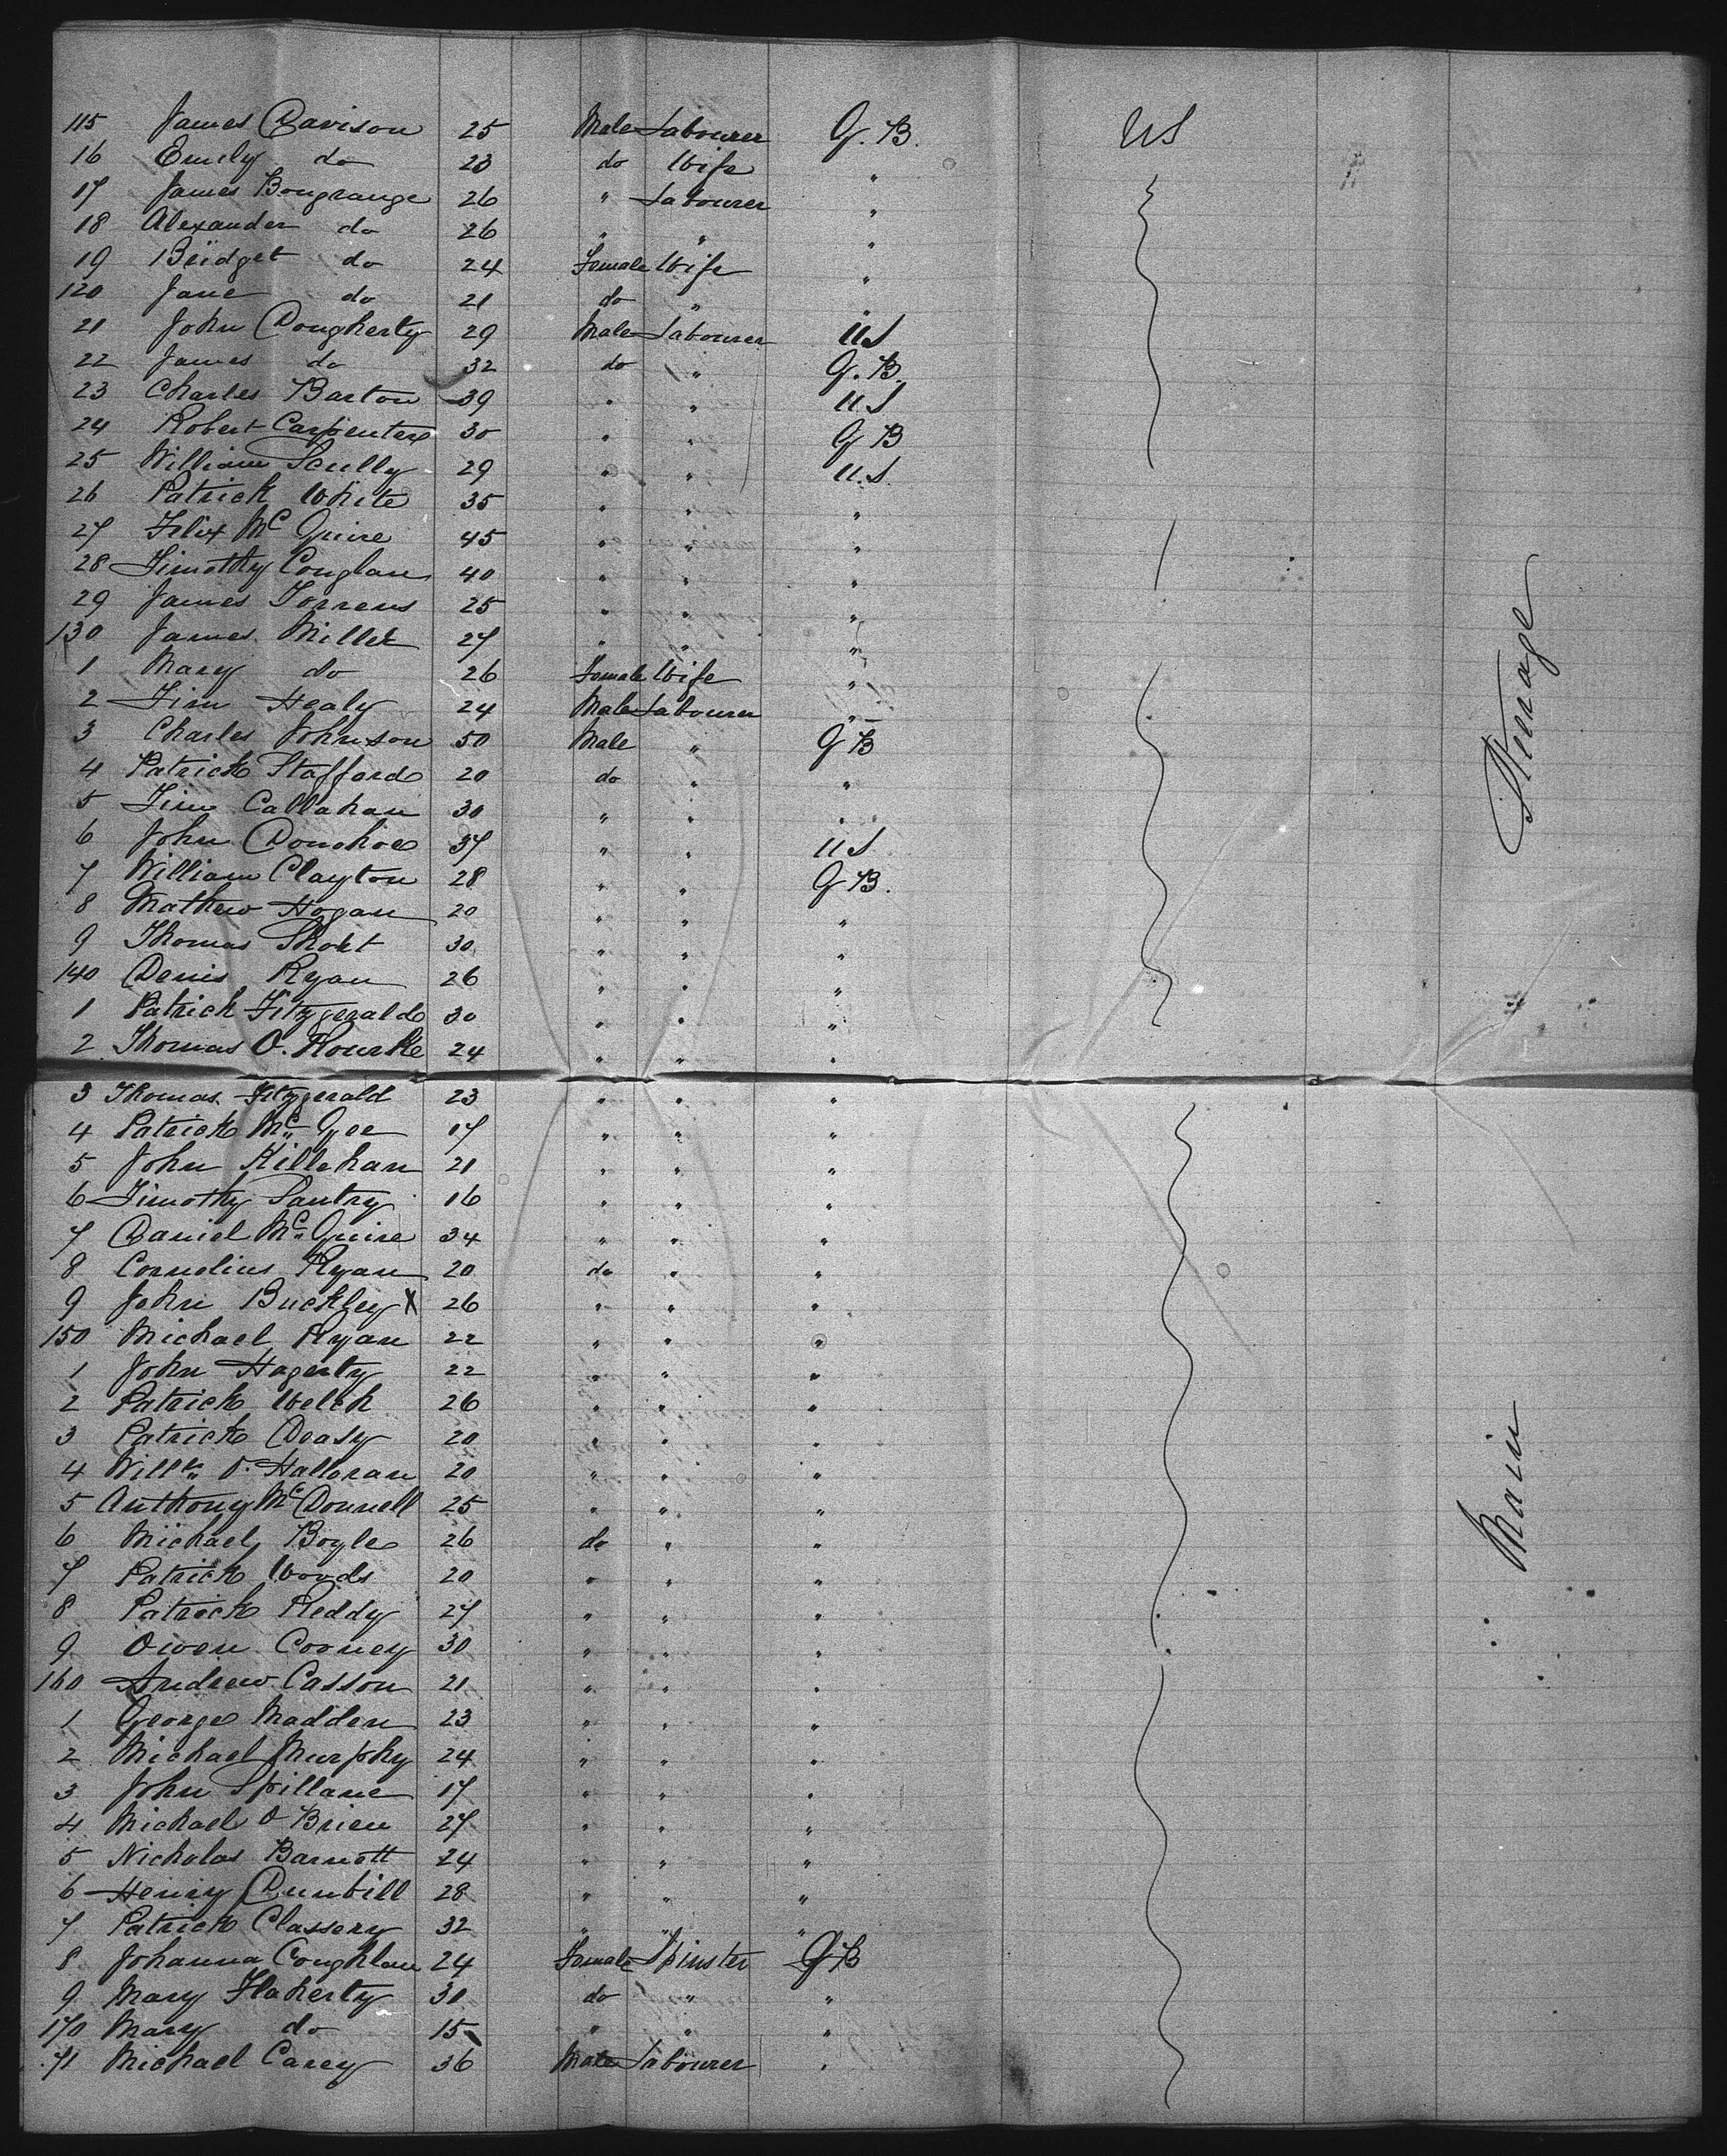 115 James Davison 25 Male Labourer G. B. US
16 Emily do 23 do Wife "
17 James Bongrange 26 " Labourer "
18 Alexander do 26 " " "
19 Bridget do 24 Female Wife "
120 Jane do 21 do " "
21 John Dougherty 29 Male Labourer US
22 James do 32 do " G. B.
23 Charles Barton 39 " " U.S
24 Robert Carpenter 30 " " G B
25 William Scully 29 " " U.S.
26 Patrick White 35 " " "
27 Felix Mc Guire 45 " " "
28 Timothy Conglan 40 " " "
29 James Torrens 25 " " "
130 James Miller 27 " " "
1 Mary do 26 Female Wife "
2 Tim Healy 24 Male Labourer "
3 Charles Johnson 50 Male " G B
4 Patrick Stafford 20 do " "
5 Tim Callahan 30 " " "
6 John Donohoe 37 " " US
7 William Clayton 28 " " G B.
8 Mathew Hogan 20 " " "
9 Thomas Short 30 " " "
140 Denis Ryan 26 " " "
1 Patrick Fitzgerald 30 " " "
2 Thomas O. Rourke 24 " " "
Steerage
3 Thomas Fitzgerald 23 " " "
4 Patrick Mc Gee 17 " " "
5 John Killehan 21 " " "
6 Timothy Santry 16 " " "
7 Daniel Mc Guire 34 " " "
8 Cornelius Ryan 20 do " "
9 John Buckley X 26 " " "
150 Michael Ryan 22 " " "
1 John Hagerty 22 " " "
2 Patrick Welch 26 " " "
3 Patrick Deasy 20 " " "
4 Willm O. Halloran 20 " " "
5 Anthony Mc Donnell 25 " " "
6 Michael Boyle 26 do " "
7 Patrick Woods 20 " " "
8 Patrick Reddy 27 " " "
9 Owen Cooney 30 " " "
160 Andrew Casson 21 " " "
1 George Madden 23 " " "
2 Michael Murphy 24 " " "
3 John Spillane 17 " " "
4 Michael O Brien 27 " " "
5 Nicholas Barnett 24 " " "
6 Henry Dunbill 28 " " "
7 Patrick Classery 32 " " "
8 Johanna Coughlan 24 Female Spinster G B
9 Mary Flaherty 30 do " "
170 Mary do 15 " " "
71 Michael Carey 36 Male Labourer "
Main